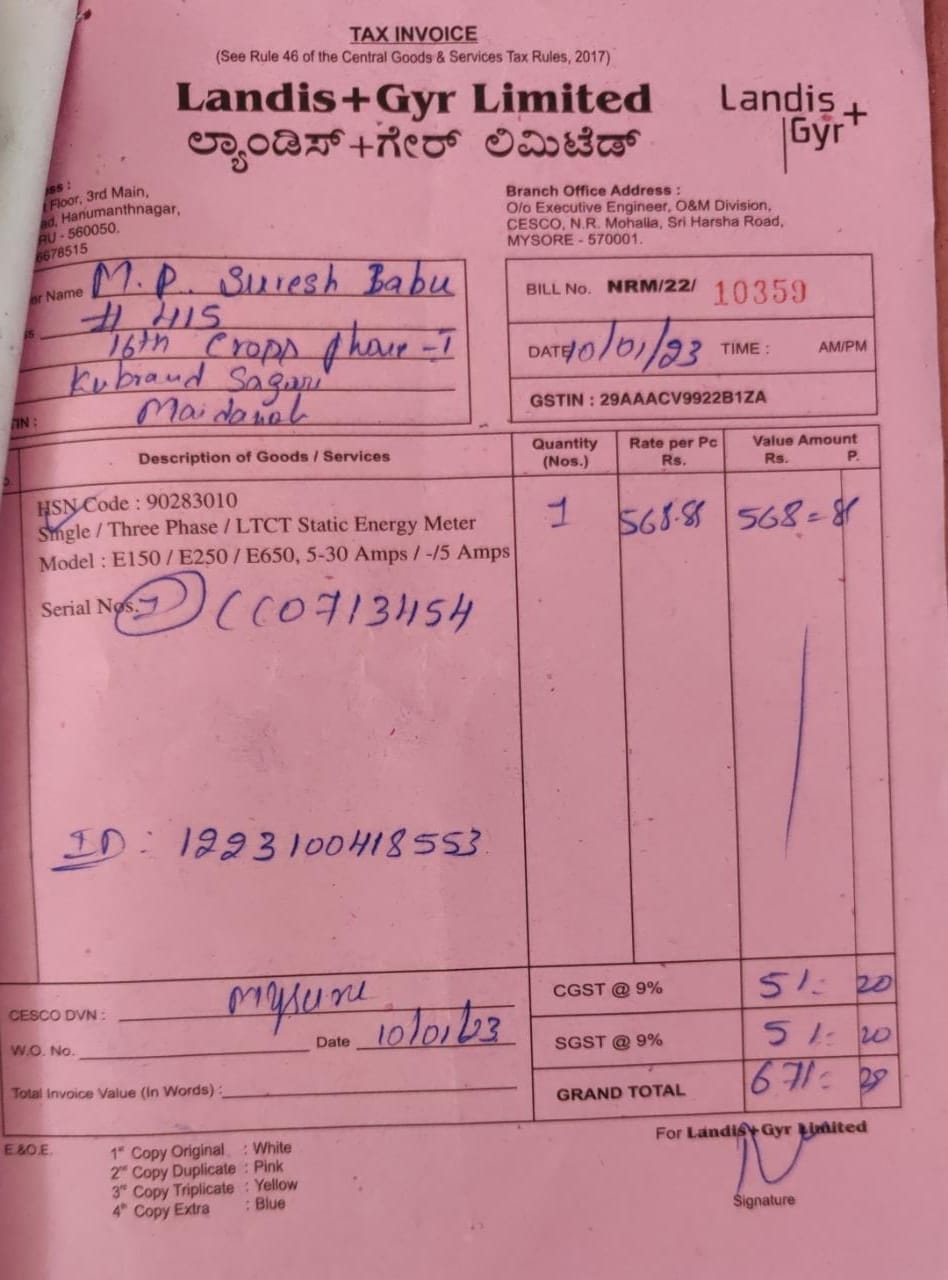 TAX INVOICE
(See Rule 46 of the Central Goods & Services Tax Rules, 2017)
Landis+Gyr Limited
ಲ್ಯಾಂಡಿಸ್+ಗೇರ್ ಲಿಮಿಟೆಡ್
Landis+
Gyr
Floor, 3rd Main,
Hanumanthnagar,
- 560050.
6678515
Branch Office Address :
O/o Executive Engineer, O&M Division,
CESCO, N.R. Mohalla, Sri Harsha Road,
MYSORE - 570001.
Name M.P. Suresh Babu
# 415
16th Crops phase-I
Sagar
BILL No. NRM/22/ 10359
DATE 10/01/23 TIME : AM/PM
GSTIN : 29AAACV9922B1ZA
Description of Goods / Services Quantity (Nos.) Rate per Pc Rs. Value Amount Rs. P.
HSN Code : 90283010
Single / Three Phase / LTCT Static Energy Meter 1 568.81 568=81
Model : E150 / E250 / E650, 5-30 Amps / -/5 Amps
Serial Nos. 1) CC0713454
ID : 1223100418553
CGST @ 9% 51= 20
CESCO DVN : Mysure
SGST @ 9% 51= 20
W.O. No. Date 10/01/23
GRAND TOTAL 671=
Total Invoice Value (In Words) :
For Landis+Gyr Limited
E.&O.E.
1st Copy Original : White
2nd Copy Duplicate : Pink
3rd Copy Triplicate : Yellow
4th Copy Extra : Blue
Signature